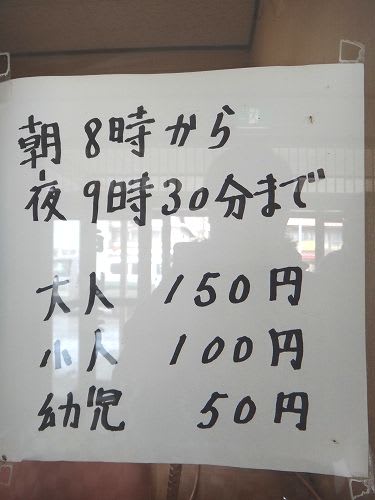 朝 8時から
夜 9時30分まで
大人 150円
小人 100円
幼児 50円